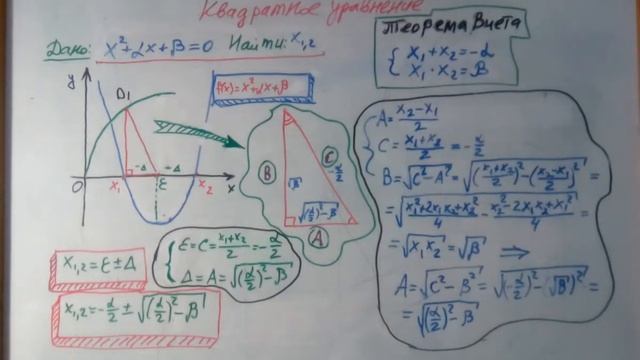 Квадратное уравнение
Дано: x²+αx+β=0 Найти: x₁,₂
Теорема Виета
{ x₁+x₂=-α
x₁·x₂=β
f(x)=x²+αx+β
y
D₁
-Δ +Δ
O x₁ ε x₂ x
B
C
-α/2
√β
√((α/2)²-β)
A
{ A=(x₂-x₁)/2
C=(x₁+x₂)/2=-α/2
B=√(C²-A²)=√(((x₁+x₂)/2)²-((x₂-x₁)/2)²)=
=√((x₁²+2x₁x₂+x₂²)/4-(x₂²-2x₁x₂+x₁²)/4)=
=√(x₁x₂)=√β ⟹
A=√(C²-B²)=√((-α/2)²-(√β)²)=
=√((α/2)²-β)
x₁,₂=ε±Δ
{ ε=C=(x₁+x₂)/2=-α/2
Δ=A=√((α/2)²-β)
x₁,₂=-α/2±√((α/2)²-β)